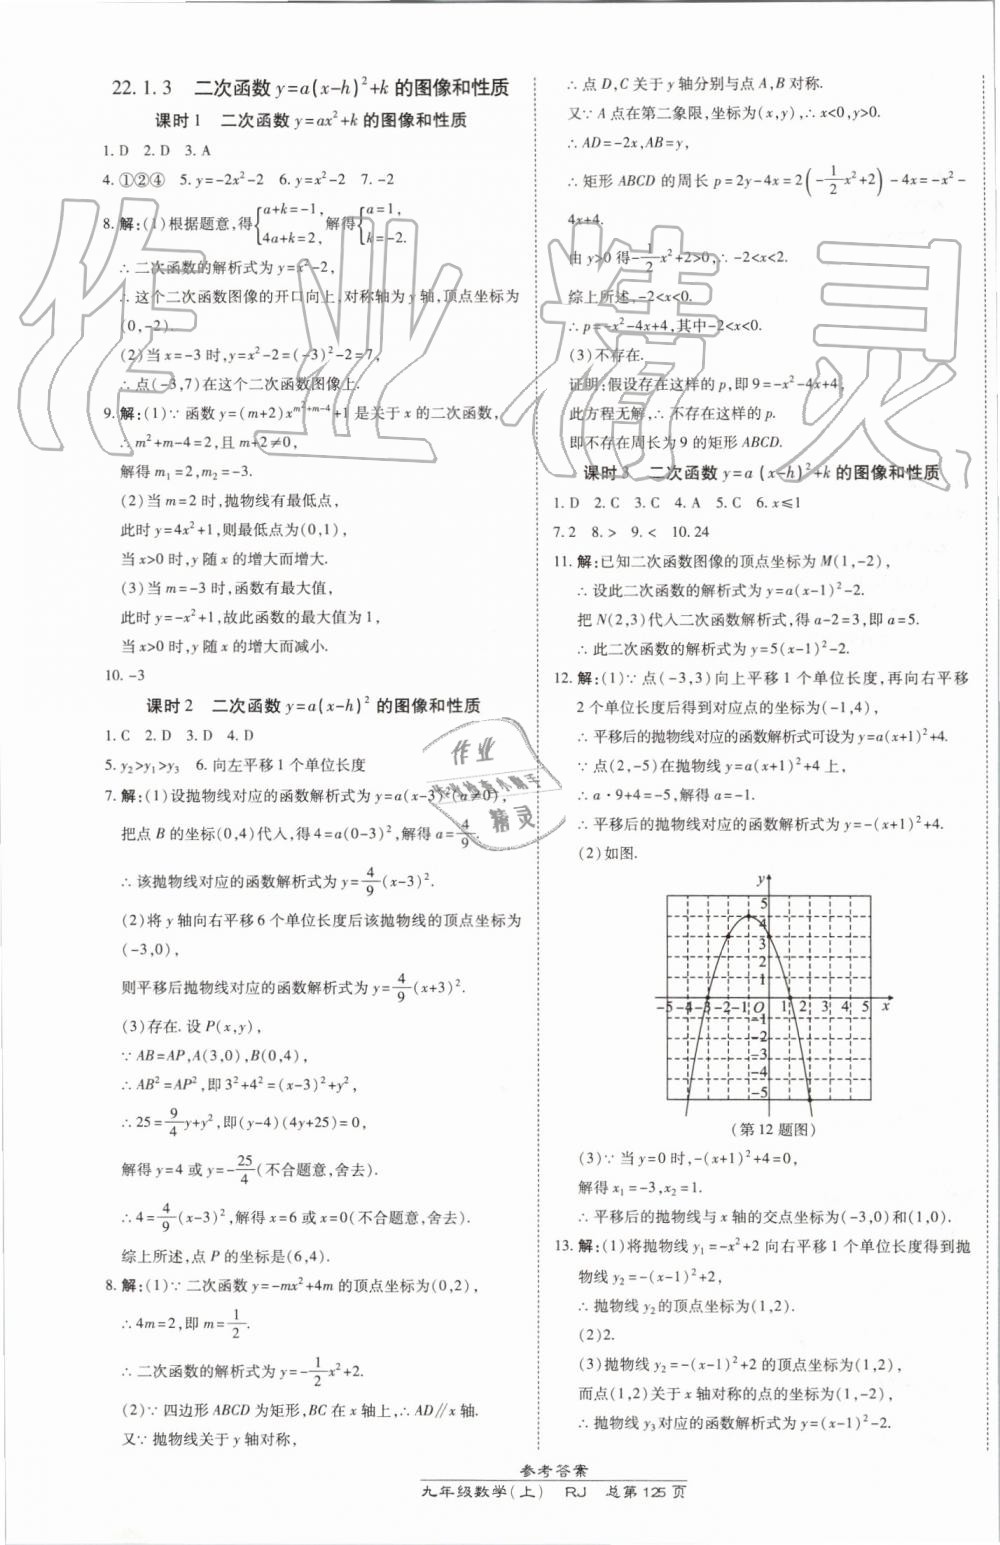 22.1.3 二次函数y=a(x-h)²+k的图像和性质
课时1 二次函数y=ax²+k的图像和性质
1. D 2. D 3. A
4. ①②④ 5. y=-2x²-2 6. y=x²-2 7. -2
8. 解:(1)根据题意,得{a+k=-1, 4a+k=2, 解得{a=1, k=-2.
∴二次函数的解析式为y=x²-2,
∴这个二次函数图像的开口向上,对称轴为y轴,顶点坐标为
(0,-2).
(2)当x=-3时,y=x²-2=(-3)²-2=7,
∴点(-3,7)在这个二次函数图像上.
9. 解:(1)∵函数y=(m+2)x^{m²+m-4}+1是关于x的二次函数,
∴m²+m-4=2,且m+2≠0,
解得m₁=2,m₂=-3.
(2)当m=2时,抛物线有最低点,
此时y=4x²+1,则最低点为(0,1),
当x>0时,y随x的增大而增大.
(3)当m=-3时,函数有最大值,
此时y=-x²+1,故此函数的最大值为1,
当x>0时,y随x的增大而减小.
10. -3
课时2 二次函数y=a(x-h)²的图像和性质
1. C 2. D 3. D 4. D
5. y₂>y₁>y₃ 6. 向左平移1个单位长度
7. 解:(1)设抛物线对应的函数解析式为y=a(x-3)²(a≠0),
把点B的坐标(0,4)代入,得4=a(0-3)²,解得a=4/9.
∴该抛物线对应的函数解析式为y=4/9(x-3)².
(2)将y轴向右平移6个单位长度后该抛物线的顶点坐标为
(-3,0),
则平移后抛物线对应的函数解析式为y=4/9(x+3)².
(3)存在. 设P(x,y),
∵AB=AP,A(3,0),B(0,4),
∴AB²=AP²,即3²+4²=(x-3)²+y²,
∴25=9/4y+y²,即(y-4)(4y+25)=0,
解得y=4或y=-25/4(不合题意,舍去).
∴4=4/9(x-3)²,解得x=6或x=0(不合题意,舍去).
综上所述,点P的坐标是(6,4).
8. 解:(1)∵二次函数y=-mx²+4m的顶点坐标为(0,2),
∴4m=2,即m=1/2.
∴二次函数的解析式为y=-1/2x²+2.
(2)∵四边形ABCD为矩形,BC在x轴上,∴AD∥x轴.
又∵抛物线关于y轴对称,
∴点D,C关于y轴分别与点A,B对称.
又∵A点在第二象限,坐标为(x,y),∴x<0,y>0.
∴AD=-2x,AB=y,
∴矩形ABCD的周长p=2y-4x=2(-1/2x²+2)-4x=-x²-
4x+4.
由y>0得-1/2x²+2>0,∴-2<x<2.
综上所述,-2<x<0.
∴p=-x²-4x+4,其中-2<x<0.
(3)不存在.
证明:假设存在这样的p,即9=-x²-4x+4,
此方程无解,∴不存在这样的p.
即不存在周长为9的矩形ABCD.
课时3 二次函数y=a(x-h)²+k的图像和性质
1. D 2. C 3. C 4. A 5. C 6. x≤1
7. 2 8. > 9. < 10. 24
11. 解:已知二次函数图像的顶点坐标为M(1,-2),
∴设此二次函数的解析式为y=a(x-1)²-2.
把N(2,3)代入二次函数解析式,得a-2=3,即a=5.
∴此二次函数的解析式为y=5(x-1)²-2.
12. 解:(1)∵点(-3,3)向上平移1个单位长度,再向右平移
2个单位长度后得到对应点的坐标为(-1,4),
∴平移后的抛物线对应的函数解析式可设为y=a(x+1)²+4.
∵点(2,-5)在抛物线y=a(x+1)²+4上,
∴a·9+4=-5,解得a=-1.
∴平移后的抛物线对应的函数解析式为y=-(x+1)²+4.
(2)如图.
y
5
4
3
2
1
-5 -4 -3 -2 -1 O 1 2 3 4 5 x
-1
-2
-3
-4
-5
(第12题图)
(3)∵当y=0时,-(x+1)²+4=0,
解得x₁=-3,x₂=1.
∴平移后的抛物线与x轴的交点坐标为(-3,0)和(1,0).
13. 解:(1)将抛物线y₁=-x²+2向右平移1个单位长度得到抛
物线y₂=-(x-1)²+2,
∴抛物线y₂的顶点坐标为(1,2).
(2)2.
(3)抛物线y₂=-(x-1)²+2的顶点坐标为(1,2),
而点(1,2)关于x轴对称的点的坐标为(1,-2),
∴抛物线y₃对应的函数解析式为y=(x-1)²-2.
参考答案
九年级数学(上) RJ 总第125页
作业精灵
作业
精灵